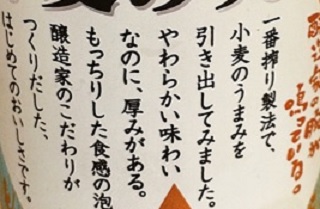 一番搾り製法で、
小麦のうまみを
引き出してみました。
やわらかい味わい
なのに、厚みがある。
もっちりした食感の泡
醸造家のこだわりが
つくりだした、
はじめてのおいしさです。
醸造家の腕が
鳴っている。